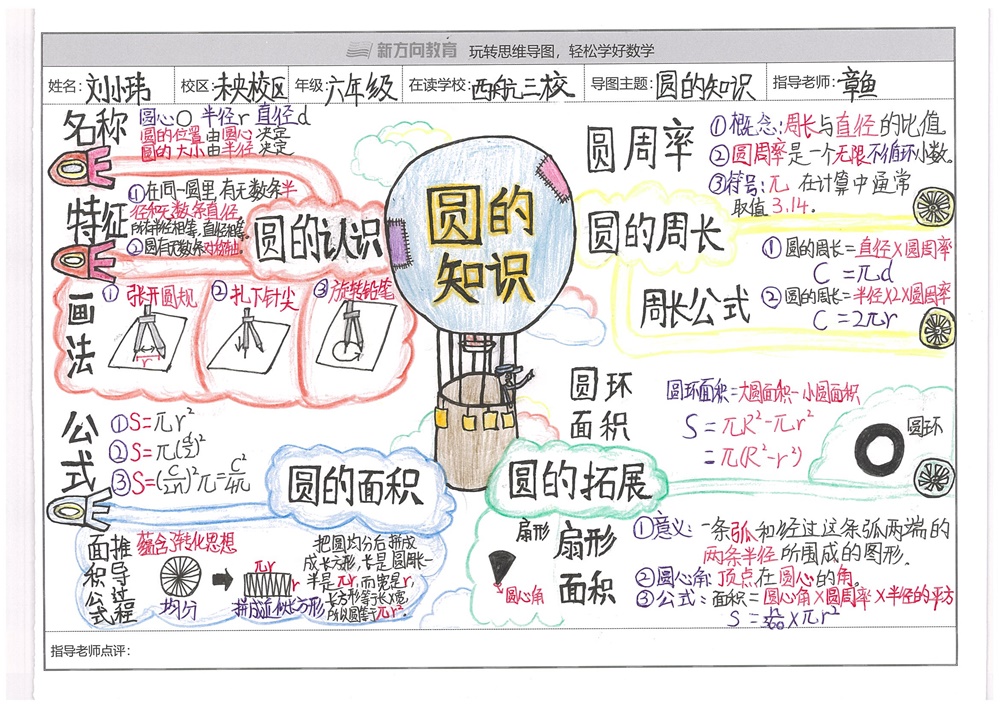 新方向教育 玩转思维导图，轻松学好数学
姓名：刘小玮 校区：未央校区 年级：六年级 在读学校：西航三校 导图主题：圆的知识 指导老师：章鱼
圆的
知识
圆的认识
名称
圆心O 半径r 直径d
圆的位置由圆心决定
圆的大小由半径决定
特征
①在同一圆里,有无数条半
径和无数条直径
所有半径相等,直径相等.
②圆有无数条对称轴.
画
法
①张开圆规
②扎下针尖
③旋转铅笔
r
圆的周长
圆周率
①概念:周长与直径的比值.
②圆周率是一个无限不循环小数.
③符号:π 在计算中通常
取值3.14.
周长公式
①圆的周长=直径×圆周率
C=πd
②圆的周长=半径×2×圆周率
C=2πr
圆的面积
公
式
①S=πr²
②S=π(d/2)²
③S=(C/2π)²π=C²/4π
面 推
积 导
公 过
式 程
蕴含:转化思想
均分
πr
r
拼成近似长方形
把圆均分后拼成
成长方形,长是圆周长一
半是πr,而宽是r,
长方形等于长×宽,
所以圆等于πr².
圆的拓展
圆环
面积
圆环面积=大圆面积-小圆面积
S=πR²-πr²
=π(R²-r²)
圆环
扇形
圆心角
扇形
面积
①意义:一条弧和经过这条弧两端的
两条半径所围成的图形.
②圆心角:顶点在圆心的角.
③公式:面积=圆心角×圆周率×半径的平方
S=n/360×πr²
指导老师点评：